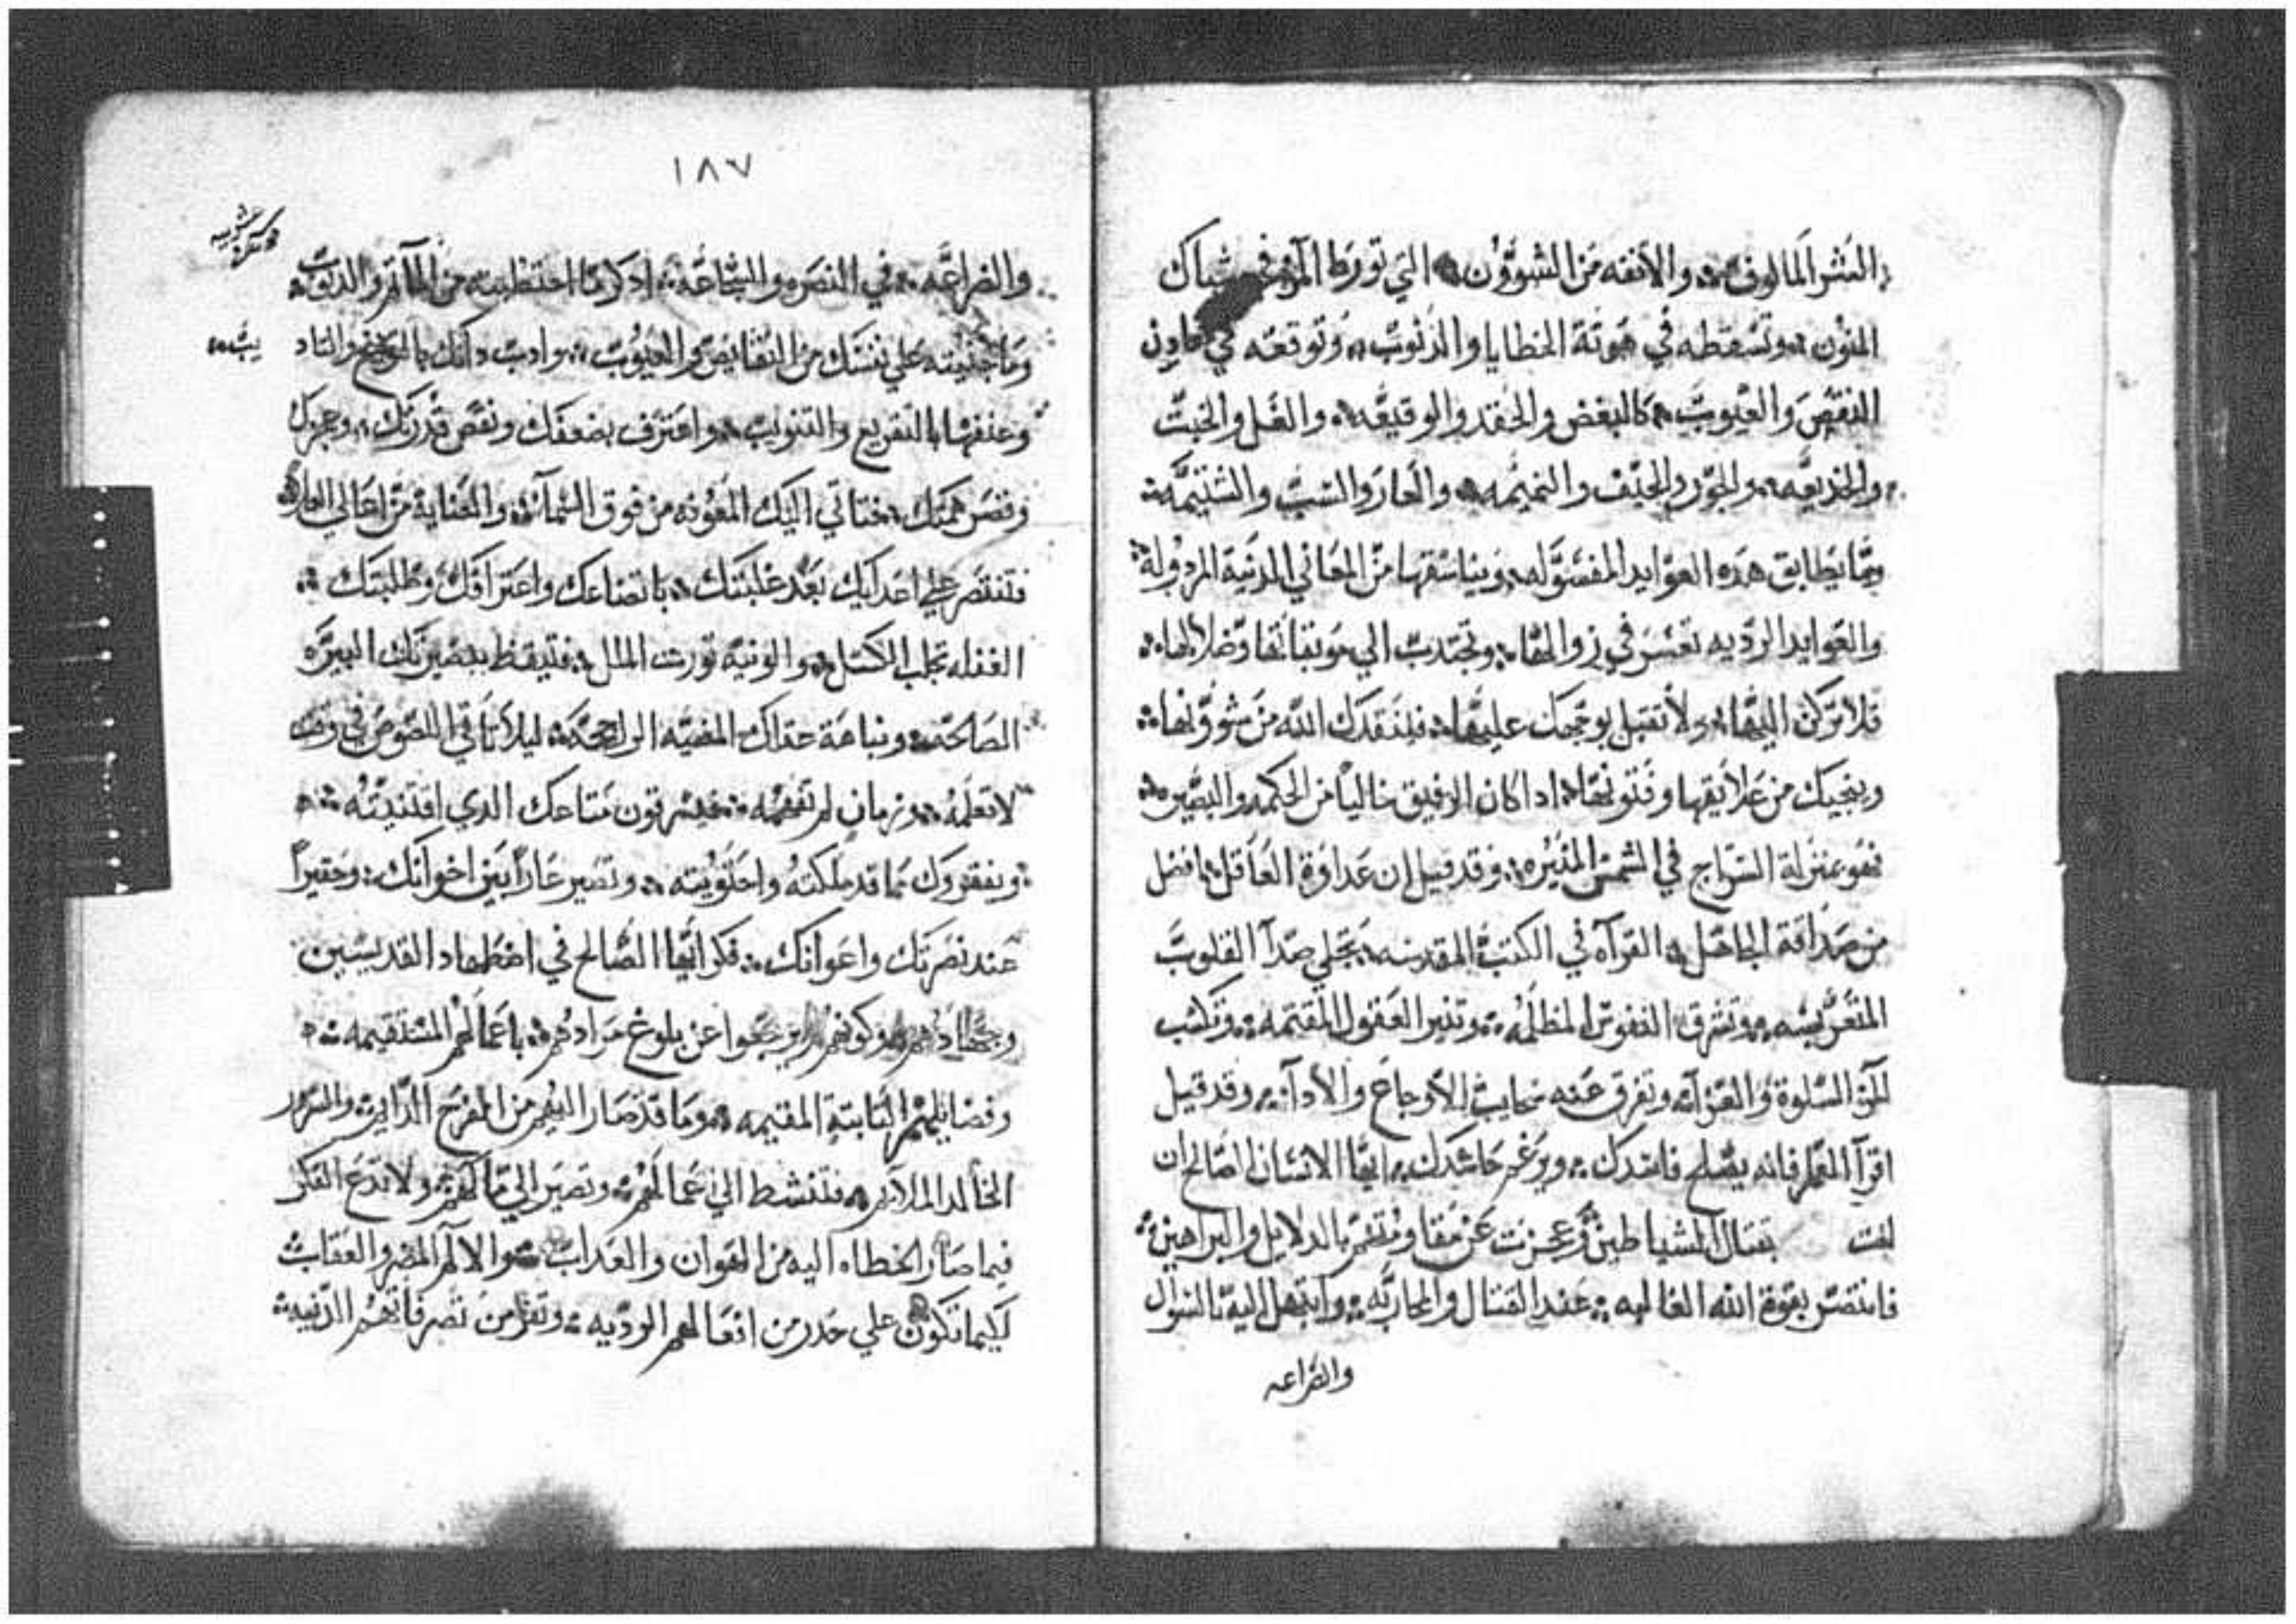 النشر المالوف والانفه من الشوون التي تورط المر في شباك
المنون وتسقطه في هوتة الخطايا والذنوب وتوقعه في
النقص والعيوب كالبغض والحقد والوقيعه والغل والخبث
والخديعه والجور والحنف والنميمه والعار والسب والشتيمه
وما يطابق هذه العوايد وينا سقها من المعاني الدنية المردوله
والعوايد الرديه تعسر في زوالها وتجتدب الي موبقاتها وضلالها
فلا تركن اليها ولا تقبل بوجهك عليها فلينقدك الله من شوونها
وينجيك من علايقها وفتونها ادا كان الرفيق خاليا من الحكمه والبصيره
فهو بمنزلة السراج في الشمس المنيره وقد قيل ان عداوة العاقل افضل
من صداقة الجاهل القراه في الكتب المقدسه تجلي صدا القلوب
وتشرق النفوس المظلمه وتنير العقول المقتمه وتكسب
المر السلوة والعزا وتفرق عنه سحايب الاوجاع والادا وقد قيل
اقرا العلم فانه يصلح فاسدك ويرغم حاسدك ايها الانسان الصالح ان
لفت بقتال الشياطين وعجزت عن مقاومتهم بالدلايل والبراهين
فانتصر بقوة الله الغالبه عند القتال والمحاربه وابتهل اليه بالسوال
والضراعه
١٨٧
والضراعه في النصره والشجاعه ادكر ما احتظيت من الماتم والذنب
وما جنيته علي نفسك من النقايص والعيوب وادب داتك بالتوبيخ والتاد
يب
وعنفها بالتقريع والتنويب واعترف بضعفك ونقص قدرتك وعجزك
وقصر همتك فتاتي اليك المعونه من فوق السما والعناية من اعالي العلا
فتنتصر علي اعدايك بعد غلبتك باتضاعك واعترافك وطلبتك
الغفله تجلب الكسل والونيه تورث الملل فتيقظ ببصيرتك النيره
الصالحه ونباهة حداك المضيه الراجحه ليلا تاتي اللصوص في وقت
لا تعلمه وزمان لم تفهمه فيسرقون متاعك الدي اقتنيته
ويفقروك مما قد ملكته واحتويته وتصير عارا بين اخوانك وحقيرا
عند نصرتك واعوانك فكر ايها الصالح في اضطهاد القديسين
وجهادهم وكونهم لم يرجعوا عن بلوغ مرادهم باعمالهم المستقيمه
وفضايلهم الثابتة المقيمه وما قد صار اليهم من الفرح الدايم والسرور
الخالد الملازم فتنشط الي اعمالهم وتصير الي مالهم ولا تدع الفكر
فيما صار الخطاه اليه من الهوان والعداب والالام المضر والعقاب
لكيما تكون علي حدر من افعالهم الرديه وتفر من تصرفاتهم الدنيه